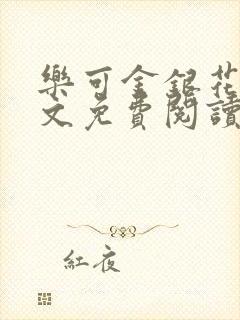 樂可金銀花
文免費閱讀
紅夜